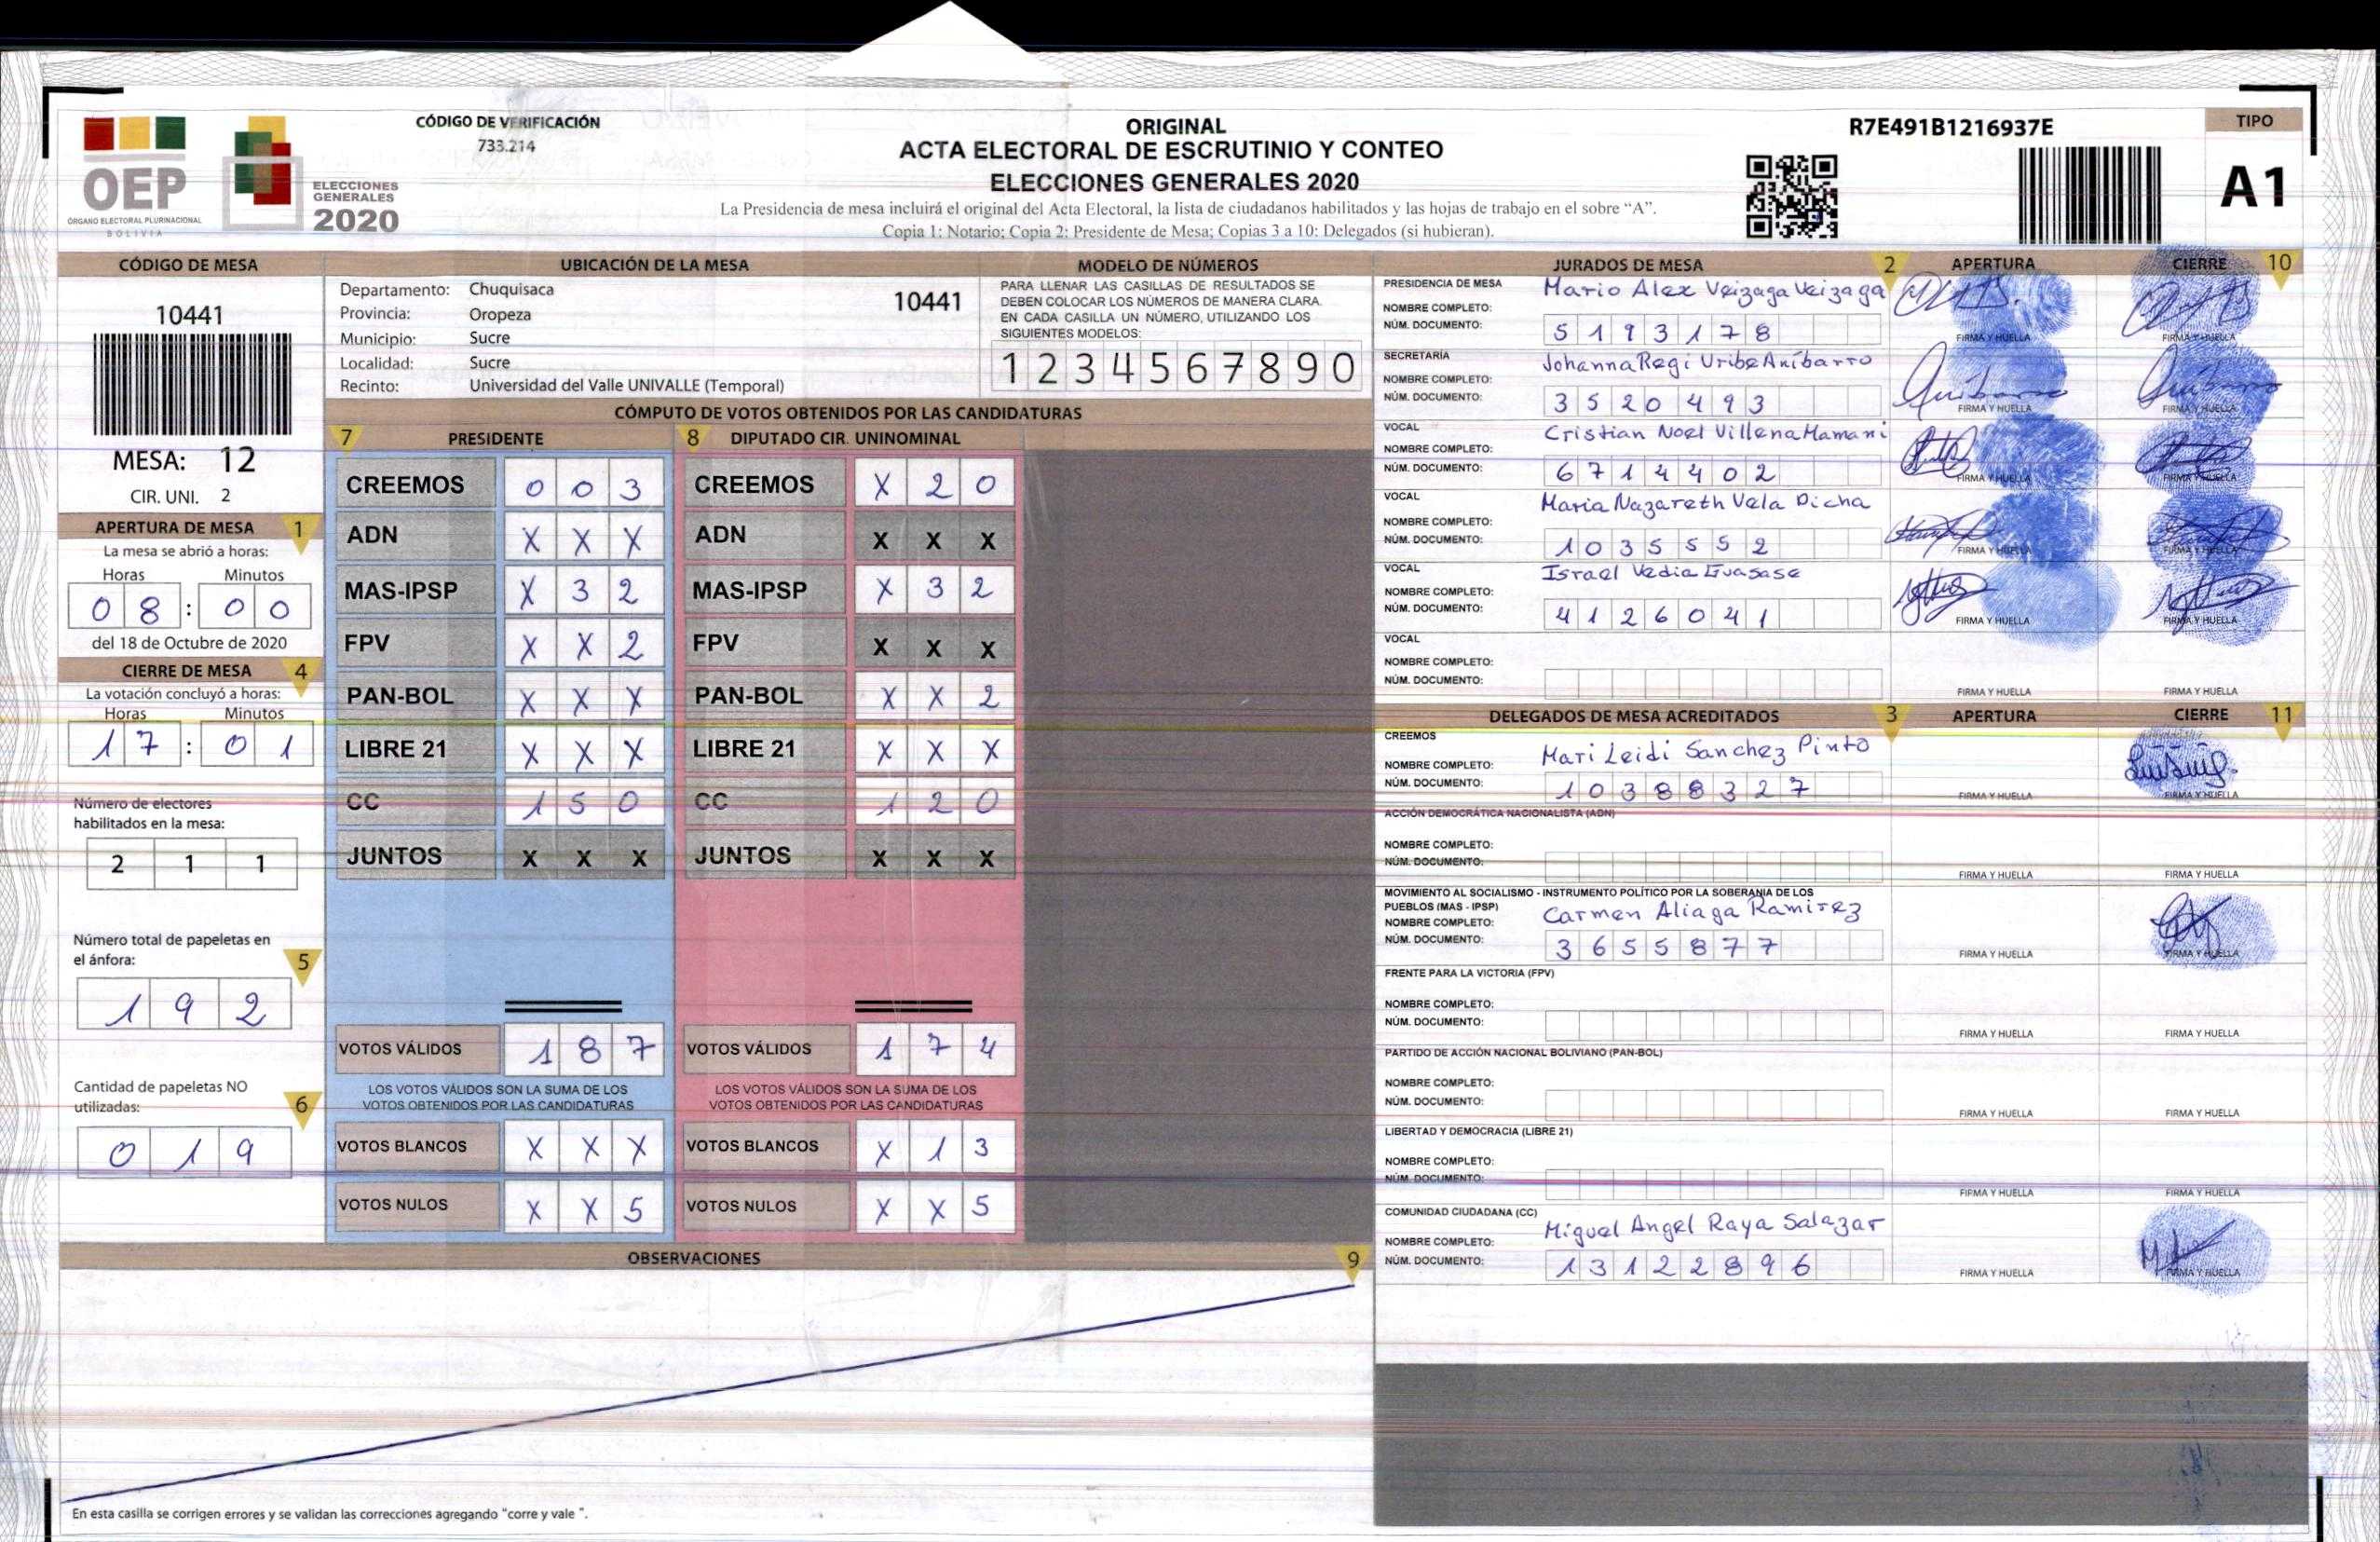 CÓDIGO DE VERIFICACIÓN
733.214
OEP
ÓRGANO ELECTORAL PLURINACIONAL
BOLIVIA
ELECCIONES
GENERALES
2020
ORIGINAL
ACTA ELECTORAL DE ESCRUTINIO Y CONTEO
ELECCIONES GENERALES 2020
La Presidencia de mesa incluirá el original del Acta Electoral, la lista de ciudadanos habilitados y las hojas de trabajo en el sobre “A”.
Copia 1: Notario; Copia 2: Presidente de Mesa; Copias 3 a 10: Delegados (si hubieran).
R7E491B1216937E
TIPO
A1
CÓDIGO DE MESA
10441
MESA: 12
CIR. UNI. 2
APERTURA DE MESA 1
La mesa se abrió a horas:
Horas Minutos
0 8 : 0 0
del 18 de Octubre de 2020
CIERRE DE MESA 4
La votación concluyó a horas:
Horas Minutos
1 7 : 0 1
Número de electores
habilitados en la mesa:
2 1 1
Número total de papeletas en
el ánfora: 5
1 9 2
Cantidad de papeletas NO
utilizadas: 6
0 1 9
UBICACIÓN DE LA MESA
Departamento: Chuquisaca 10441
Provincia: Oropeza
Municipio: Sucre
Localidad: Sucre
Recinto: Universidad del Valle UNIVALLE (Temporal)
MODELO DE NÚMEROS
PARA LLENAR LAS CASILLAS DE RESULTADOS SE
DEBEN COLOCAR LOS NÚMEROS DE MANERA CLARA.
EN CADA CASILLA UN NÚMERO, UTILIZANDO LOS
SIGUIENTES MODELOS:
1 2 3 4 5 6 7 8 9 0
CÓMPUTO DE VOTOS OBTENIDOS POR LAS CANDIDATURAS
7 PRESIDENTE
CREEMOS 0 0 3
ADN X X X
MAS-IPSP X 3 2
FPV X X 2
PAN-BOL X X X
LIBRE 21 X X X
CC 1 5 0
JUNTOS X X X
VOTOS VÁLIDOS 1 8 7
LOS VOTOS VÁLIDOS SON LA SUMA DE LOS
VOTOS OBTENIDOS POR LAS CANDIDATURAS
VOTOS BLANCOS X X X
VOTOS NULOS X X 5
8 DIPUTADO CIR. UNINOMINAL
CREEMOS X 2 0
ADN X X X
MAS-IPSP X 3 2
FPV X X X
PAN-BOL X X 2
LIBRE 21 X X X
CC 1 2 0
JUNTOS X X X
VOTOS VÁLIDOS 1 7 4
LOS VOTOS VÁLIDOS SON LA SUMA DE LOS
VOTOS OBTENIDOS POR LAS CANDIDATURAS
VOTOS BLANCOS X 1 3
VOTOS NULOS X X 5
OBSERVACIONES 9
En esta casilla se corrigen errores y se validan las correcciones agregando "corre y vale ".
JURADOS DE MESA 2 APERTURA CIERRE 10
PRESIDENCIA DE MESA
NOMBRE COMPLETO: Mario Alex Veizaga Veizaga
NÚM. DOCUMENTO: 5 1 9 3 1 7 8
FIRMA Y HUELLA FIRMA Y HUELLA
SECRETARÍA
NOMBRE COMPLETO: Johanna Regi Uribe Aníbarro
NÚM. DOCUMENTO: 3 5 2 0 4 9 3
FIRMA Y HUELLA FIRMA Y HUELLA
VOCAL
NOMBRE COMPLETO: Cristian Noel Villena Mamani
NÚM. DOCUMENTO: 6 7 1 4 4 0 2
FIRMA Y HUELLA FIRMA Y HUELLA
VOCAL
NOMBRE COMPLETO: Maria Nazareth Vela Dicha
NÚM. DOCUMENTO: 1 0 3 5 5 5 2
FIRMA Y HUELLA FIRMA Y HUELLA
VOCAL
NOMBRE COMPLETO: Israel Vedia
NÚM. DOCUMENTO: 4 1 2 6 0 4 1
FIRMA Y HUELLA FIRMA Y HUELLA
VOCAL
NOMBRE COMPLETO:
NÚM. DOCUMENTO:
FIRMA Y HUELLA FIRMA Y HUELLA
DELEGADOS DE MESA ACREDITADOS 3 APERTURA CIERRE 11
CREEMOS
NOMBRE COMPLETO: Mari Leidi Sanchez Pinto
NÚM. DOCUMENTO: 1 0 3 8 8 3 2 7
FIRMA Y HUELLA FIRMA Y HUELLA
ACCIÓN DEMOCRÁTICA NACIONALISTA (ADN)
NOMBRE COMPLETO:
NÚM. DOCUMENTO:
FIRMA Y HUELLA FIRMA Y HUELLA
MOVIMIENTO AL SOCIALISMO - INSTRUMENTO POLÍTICO POR LA SOBERANIA DE LOS
PUEBLOS (MAS - IPSP)
NOMBRE COMPLETO: Carmen Aliaga Ramirez
NÚM. DOCUMENTO: 3 6 5 5 8 7 7
FIRMA Y HUELLA FIRMA Y HUELLA
FRENTE PARA LA VICTORIA (FPV)
NOMBRE COMPLETO:
NÚM. DOCUMENTO:
FIRMA Y HUELLA FIRMA Y HUELLA
PARTIDO DE ACCIÓN NACIONAL BOLIVIANO (PAN-BOL)
NOMBRE COMPLETO:
NÚM. DOCUMENTO:
FIRMA Y HUELLA FIRMA Y HUELLA
LIBERTAD Y DEMOCRACIA (LIBRE 21)
NOMBRE COMPLETO:
NÚM. DOCUMENTO:
FIRMA Y HUELLA FIRMA Y HUELLA
COMUNIDAD CIUDADANA (CC)
NOMBRE COMPLETO: Miguel Angel Raya Salazar
NÚM. DOCUMENTO: 1 3 1 2 2 8 9 6
FIRMA Y HUELLA FIRMA Y HUELLA